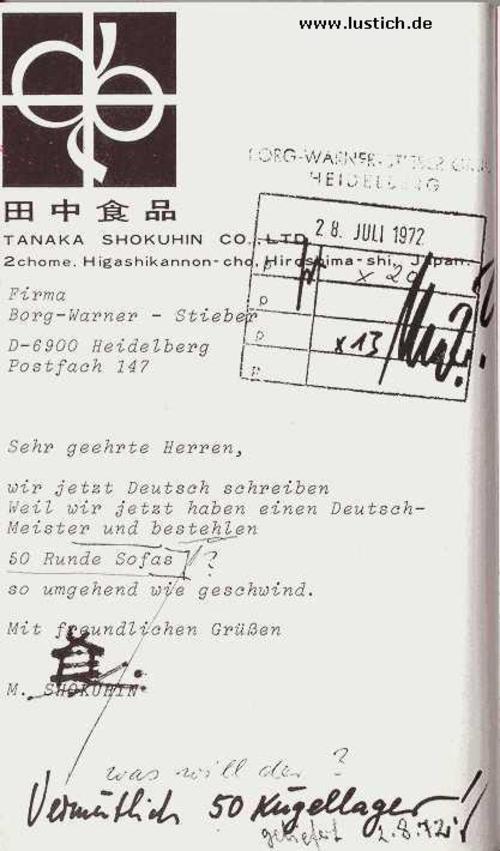 www.lustich.de
BORG-WARNER-STIEBER
HEIDELBERG
28. JULI 1972
P
x 20
P
P
x 13
P
田中食品
TANAKA SHOKUHIN CO., LTD.
2chome, Higashikannon-cho, Hiroshima-shi, Japan.
Firma
Borg-Warner - Stieber
D-6900 Heidelberg
Postfach 147
Sehr geehrte Herren,
wir jetzt Deutsch schreiben
Weil wir jetzt haben einen Deutsch-
Meister und bestehlen
50 Runde Sofas ?
so umgehend wie geschwind.
Mit freundlichen Grüßen
M. SHOKUHIN
was will der ?
Vermutlich 50 Kugellager !
geliefert 2.8.72